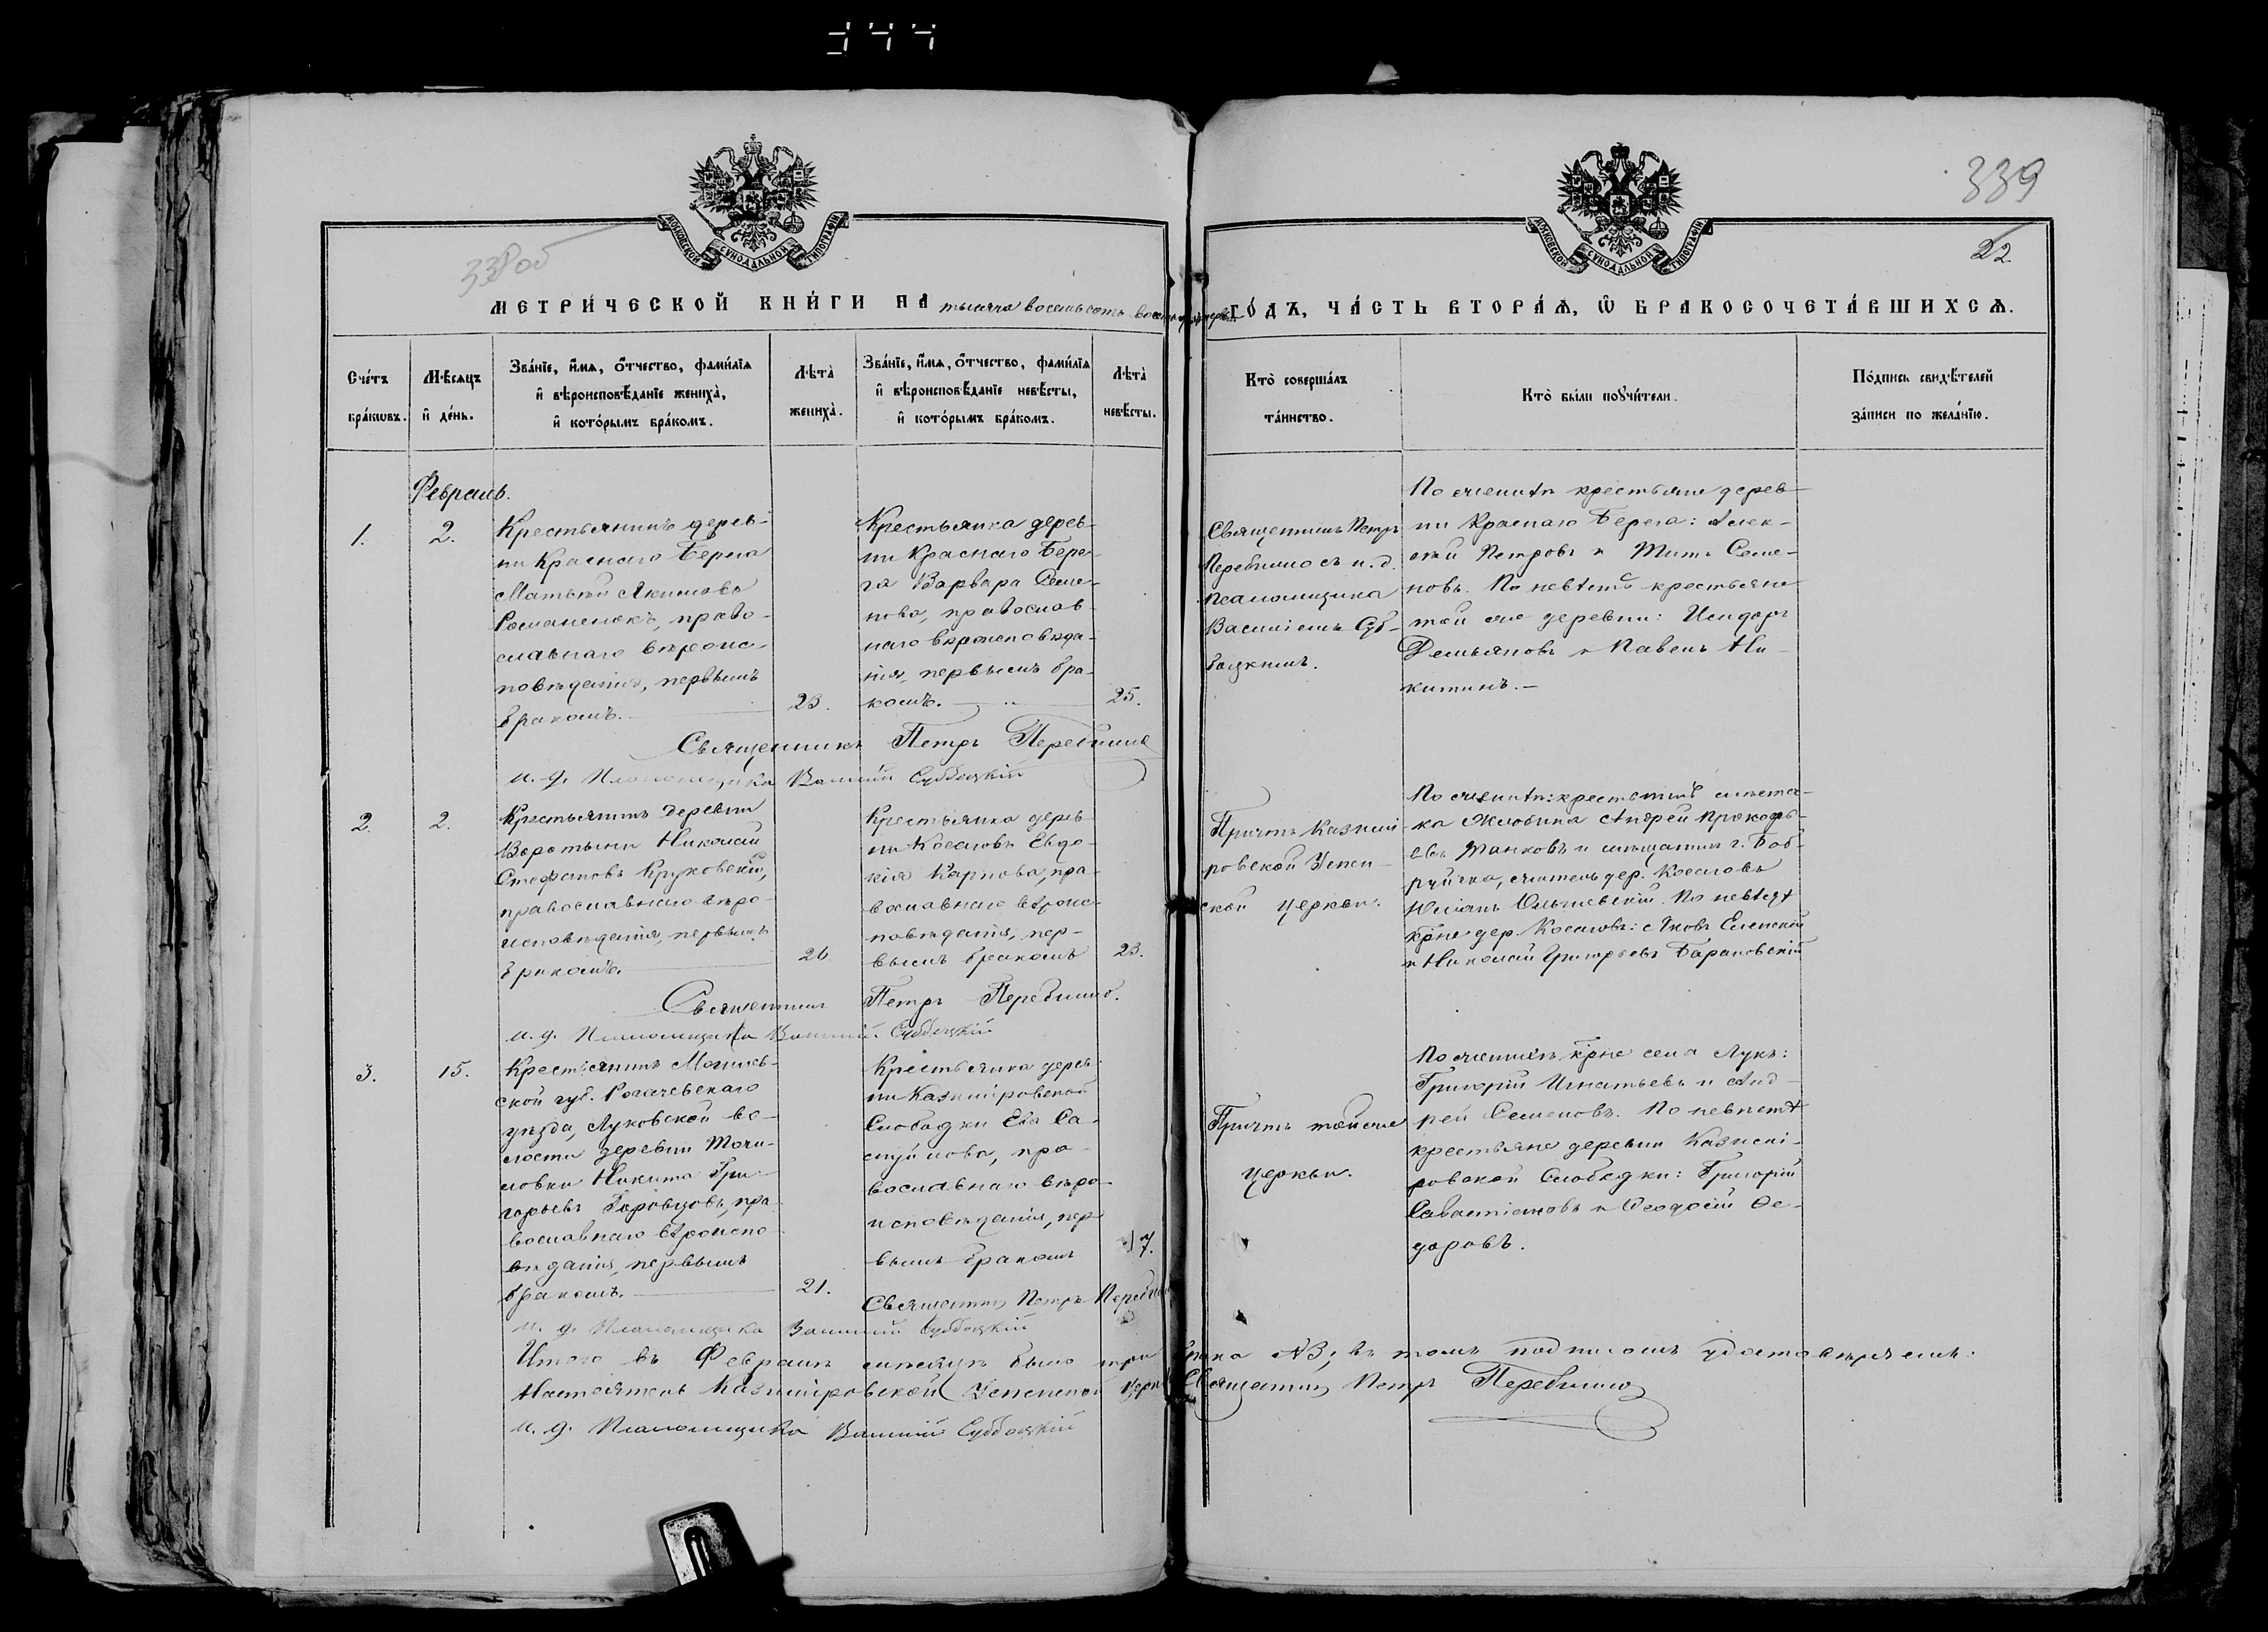 344
339
22.
338 об
МОСКОВСКОЙ СѴНОДАЛЬНОЙ ТИПОГРАФІИ
МОСКОВСКОЙ СѴНОДАЛЬНОЙ ТИПОГРАФІИ
МЕТРИ́ЧЕСКОЙ КНИ́ГИ НА тысяча восемьсотъ ГО́ДЪ, ЧА́СТЬ ВТОРА́Ѧ, Ѿ БРАКОСОЧЕТА́ВШИХСѦ.
Сче́тъ
бра́ковъ.
Мѣ́сяцъ
и де́нь.
Зва́нїе, и́мя, о́тчество, фами́лїя
и вѣроисповѣ́данїе жениха̀,
и кото́рымъ бра́комъ.
Лѣ́та
жениха̀.
Зва́нїе, и́мя, о́тчество, фами́лїя
и вѣроисповѣ́данїе невѣ́сты,
и кото́рымъ бра́комъ.
Лѣ́та
невѣ́сты.
Кто̀ соверша́лъ
та́инство.
Кто̀ бы́ли поручи́тели.
По́дпись свидѣ́телей
за́писи по жела́нїю.
Февраль.
1.
2.
Крестьянинъ дерев-
ни Краснаго Берега
Матвѣй Якимовъ
Романенокъ, право-
славнаго вѣроис-
повѣданія, первымъ
бракомъ.
23.
Крестьянка дерев-
ни Краснаго Бере-
га Варвара Семе-
нова, православ-
наго вѣроисповѣда-
нія, первымъ бра-
комъ.
25.
Священникъ Петръ
съ и. д.
Псаломщика
Василіемъ Суб-
боцкимъ.
По женихѣ крестьяне дерев-
ни Краснаго Берега: Алек-
сѣй Петровъ и Титъ Семе-
новъ. По невѣстѣ крестьяне
той же деревни: Исидоръ
Демьяновъ и Павелъ Ни-
китинъ.
Священникъ Петръ
и. д. Псаломщика Василій Субботскій
2.
2.
Крестьянинъ деревни
Воротыни Николай
Стефановъ Круковскій,
православнаго вѣро-
исповѣданія, первымъ
бракомъ.
26
Крестьянка дерев-
ни Косаковъ Евдо-
кія Карпова, пра-
вославнаго вѣроис-
повѣданія, пер-
вымъ бракомъ
23.
Причтъ Казимі-
ровской Успен-
ской церкви.
По женихѣ: крестьянинъ мѣстеч-
ка Жлобина Андрей Прокофь-
евъ и мѣщанинъ г. Боб-
руйска, житель дер. Косаковъ
По невѣстѣ
кр̃не дер. Косаковъ: Яковъ
и Николай Григорьевъ Барановскій
Священникъ Петръ
и. д. Псаломщика Василій Субботскій
3.
15.
Крестьянинъ Могилев-
ской губ. Рогачевскаго
уѣзда, Луковской во-
лости деревни
Никита Гри-
горьевъ пра-
вославнаго вѣроиспо-
вѣданія, первымъ
бракомъ.
21.
Крестьянка дерев-
ни Казиміровской
Слободки Ева Са-
муйлова, пра-
вославнаго вѣро-
исповѣданія, пер-
вымъ бракомъ
17.
Причтъ той же
церкви.
По женихѣ кр̃не села Лукъ:
Григорій Игнатьевъ и Анд-
рей Семеновъ. По невѣстѣ
крестьяне деревни Казимі-
ровской Слободки: Григорій
Савастіановъ и Ѳеодосій Ѳе-
доровъ.
Священникъ Петръ
и. д. Псаломщика Василій Субботскій
Итого въ Февралѣ мѣсяцѣ было три брака №3; въ томъ подписомъ удостовѣряемъ:
Настоятель Казиміровской Успенской церкви Священникъ Петръ
и. д. Псаломщика Василій Субботскій